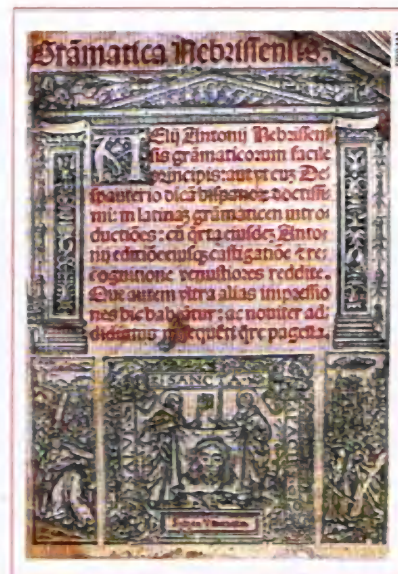 Grāmatica Nebrissensis.
Elij Antonij Nebrissen
sis grāmaticorum facile
principis: aut vt cuz Des
pauterio dicā hispanoꝝ doctissi
mi: in latinaꝫ grāmaticen intro
ductiōes: cū q̄rta eiusdeꝫ Anto
nij editiōe eiusqꝫ castigatiōe ⁊ re
cognitione venustiores reddite.
Que autem vltra alias impressio
nes hic habeātur: ac noviter ad
didimus
SANCTA